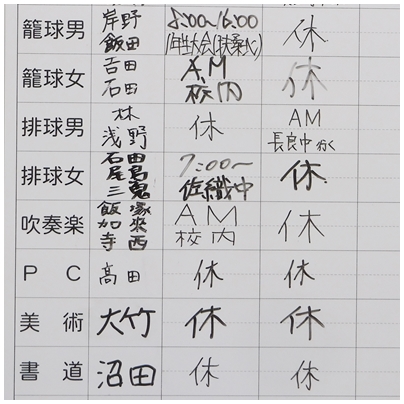 籠球男 岸野 8:00~16:00 休
飯田 1年生大会(扶桑へ)
籠球女 吉田 AM 休
石田 校内
排球男 林 休 AM
浅野 長良中 行く
排球女 石田 7:00~ 休
尾島 佐織中
三鬼
吹奏楽 飯塚 AM 休
加来 校内
寺西
PC 高田 休 休
美術 大竹 休 休
書道 沼田 休 休